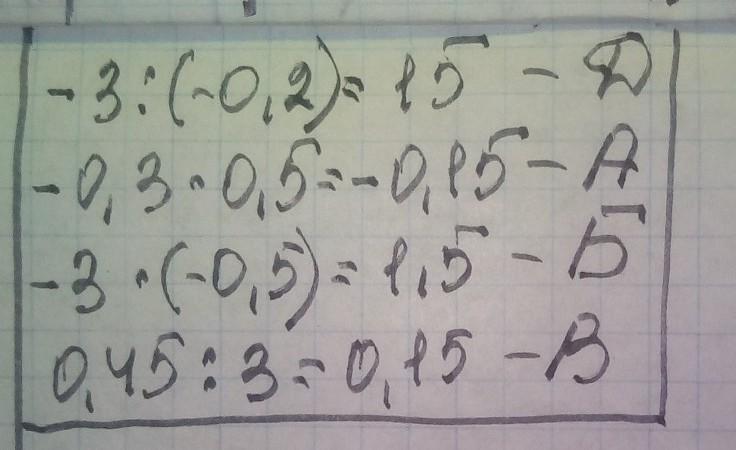 -3:(-0,2)=15 - Д
-0,3·0,5=-0,15-А
-3·(-0,5)=1,5-Б
0,45:3=0,15-В